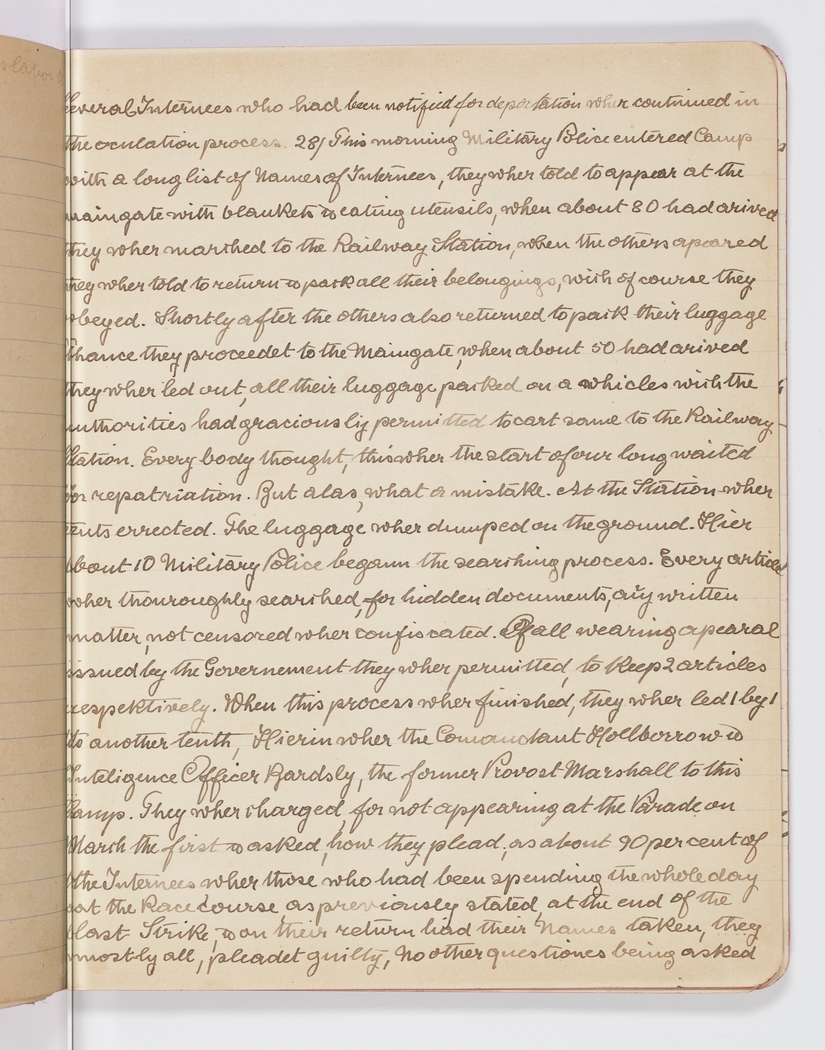 Several Internees who had been notified for deportation wher continued in
the oculation process. 28/ This morning Military Police entered Camp
with a long list of Names of Internees, they wher told to appear at the
maingate with blankets & eating utensils, when about 80 had arived
they wher marched to the Railway Station, when the others apeared
they wher told to return & pack all their belongings, wich of course they
obeyed. Shortly after the others also returned to pack their luggage
thance they proceedet to the Maingate, when about 50 had arived
they wher led out, all their luggage packed on a whicles wich the
authorities had graciously permitted to cart same to the Railway
Station. Every body thought, this wher the start of our long waited
for repatriation. But alas, what a mistake. At the Station wher
tents errected. The luggage wher dumped on the ground. Hier
about 10 Military Police begann the searching process. Every article
wher thouroughly searched, for hidden documents, any written
matter, not censored wher confiscated. Of all wearing apearal
issued by the Governement they wher permitted, to keep 2 articles
respektively. When this process wher finished, they wher led 1 by 1
to another tenth, Hierin wher the Comandant Hollborrow &
Inteligence Officer Bardsly, the former Provost Marshall to this
Camp. They wher charged, for not appearing at the Parade on
March the first & asked, how they plead, as about 90 per cent of
the Internees wher those who had been spending the whole day
at the Race course as previously stated, at the end of the
last Strike, & on their return had their Names taken, they
mostly all, pleadet guilty, No other questiones being asked